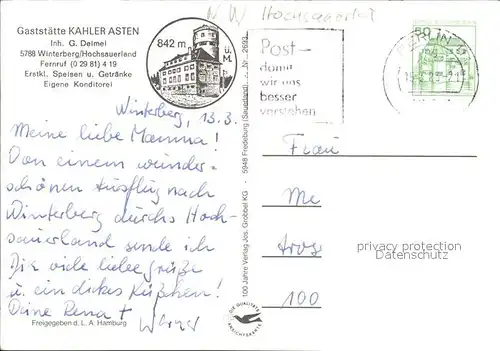 N W Hochsauerlat
Gaststätte KAHLER ASTEN
Inh. G. Deimel
5788 Winterberg/Hochsauerland
Fernruf (0 29 81) 4 19
Erstkl. Speisen u. Getränke
Eigene Konditorei
842 m
ü. M.
Post-
damit
wir uns
besser
verstehen
BERLIN
Winterberg, 13.3.
Meine liebe Mamma!
Von einem wunder-
schönen Ausflug nach
Winterberg durchs Hoch-
sauerland sende ich
Dir viele liebe Grüße
u. ein dickes Küßchen!
Deine Rena +
Werner
Freigegeben d. L. A. Hamburg
100 Jahre Verlag Jos. Grobbel KG - 5948 Fredeburg (Sauerland) - Nr. 2692
DIE QUALITÄTS
ANSICHTSKARTE
Frau
Me
tros
100
privacy protection
Datenschutz